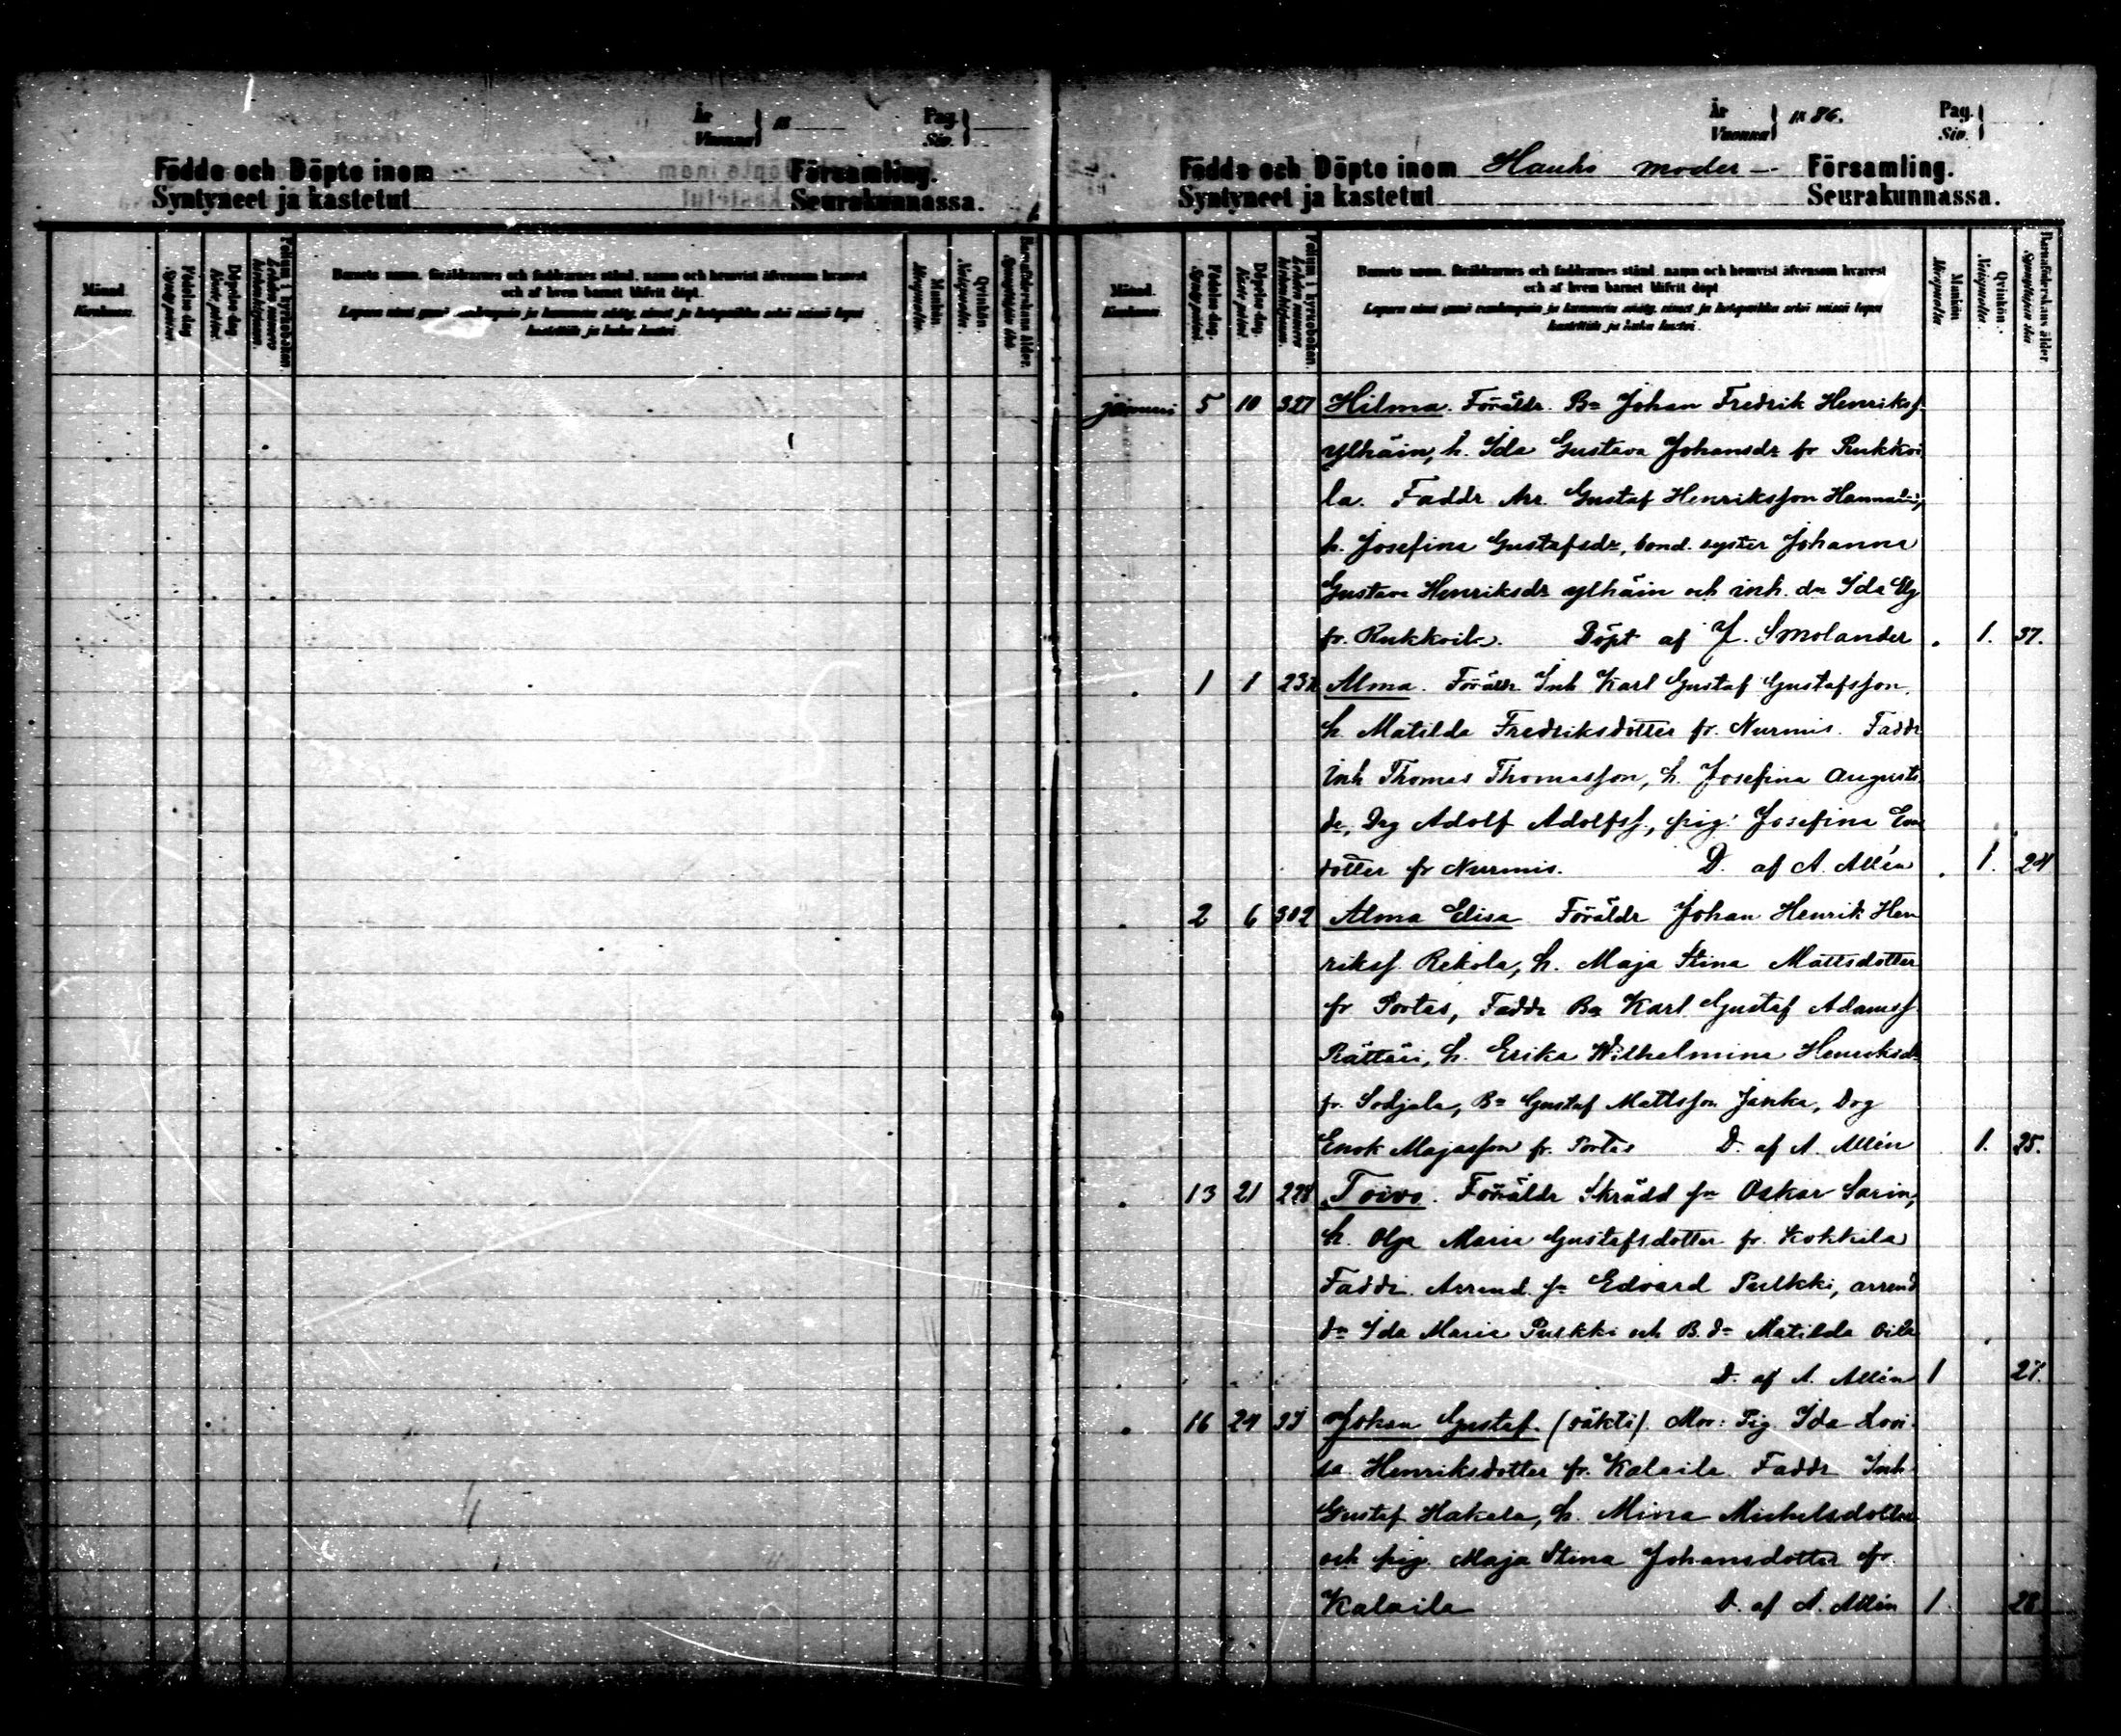 År
Vuonna
18
Pag.
Siv.
Födde och Döpte inom
Församling.
Syntyneet ja kastetut
Seurakunnassa.
Månad.
Kuukausi.
Födelse-dag.
Syntymä-päivä.
Döpelse-dag.
Kaste-päivä.
Folium i kyrkoboken.
Barnets namn, föräldrarnes och faddrarnes stånd, namn och hemvist äfvensom hvarest
och af hvem barnet blifvit döpt.
Mankön
Miespuolta.
Qvinkön.
Naispuolta.
Barnaföderskans ålder.
År
Vuonna
1886.
Pag.
Siv.
Födde och Döpte inom Hauho moder- Församling.
Syntyneet ja kastetut Seurakunnassa.
Månad.
Kuukausi.
Födelse-dag.
Syntymä-päivä.
Döpelse-dag.
Kaste-päivä.
Folium i kyrkoboken.
Barnets namn, föräldrarnes och faddrarnes stånd, namn och hemvist äfvensom hvarest
och af hvem barnet blifvit döpt
Mankön
Miespuolta
Qvinkön.
Naispuolta.
Barnaföderskans ålder.
januari 5 10 327 Hilma. Föräldr. Bn Johan Fredrik Henriksf.
Ylhäin, h. Ida Gustava Johansdr fr Rukkoi
la. Faddr Arr. Gustaf Henriksson
h. Josefina Gustafsdr, bond. syster Johanna
Gustava Henriksdr Ylhäin och inh. dr Ida
fr. Rukkoila. Döpt af J. Smolander 1. 37.
1 1 Alma. Föräldr Inh Karl Gustaf Gustafsson,
h. Matilda Fredriksdotter fr. Nurmis. Faddr
Inh Thomas Thomasson, h. Josefina Augusts
dr, Drg Adolf Adolfsf., pig. Josefina
dotter fr Nurmis. D. af A. Allén 1. 24
2 6 302 Alma Elisa Föräldr Johan Henrik Hen
riksf. Rekola, h. Maja Stina Mattsdotter
fr Portas, Faddr Bn Karl Gustaf Adamsf
Rätteri, h. Erika Wilhelmina Henriksdr
fr. Sodjala, Bn Gustaf Mattsson Janka, Drg
Enok Majasson fr. Portas D. af A. Allén 1. 25.
13 21 228 Toivo. Föräldr Skrädd fn Oskar Sarin,
h. Olga Maria Gustafsdotter fr. Kokkila
Faddr. Arrend. fn Edvard Pulkki, arrend
dn Ida Maria Pulkki och B. dn Matilda Oila
D. af A. Allén 1 27.
16 24 Johan Gustaf. (oäkti) Mor: Pig Ida Lovi-
sa Henriksdotter fr. Kalaila. Faddr Inh
Gustaf Hakala, h. Mina Michelsdotter
och pig. Maja Stina Johansdotter fr.
Kalaila D. af A. Allén 1 28